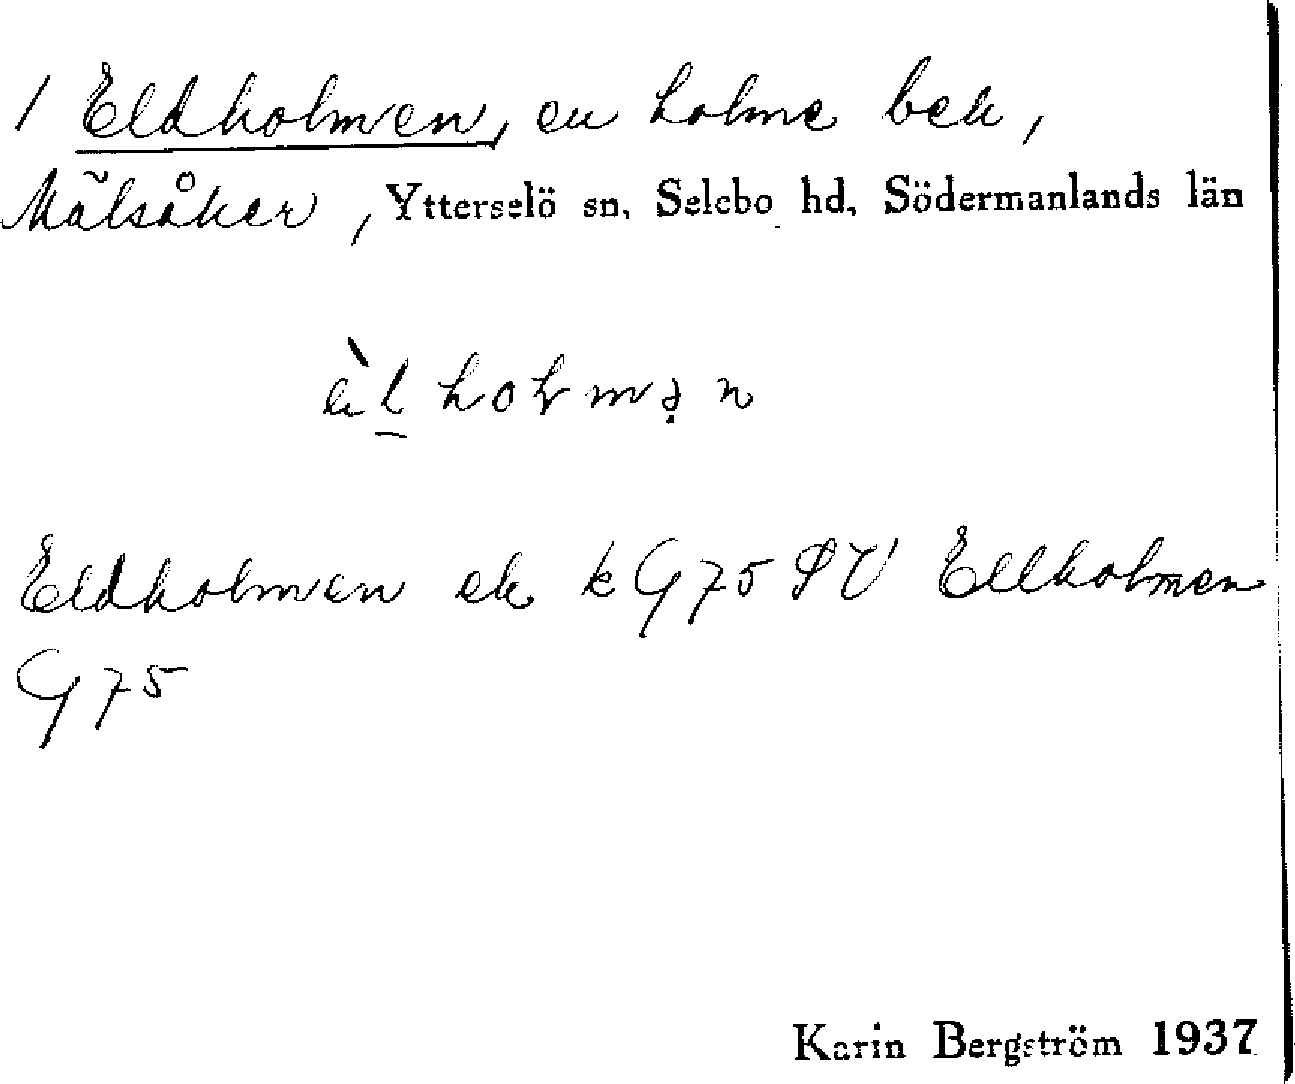 1 Eldholmen, en holme bek,
Mälsåker, Ytterselö sn, Selebo hd, Södermanlands län
Eldholmen ek k G75 SV Ellholmen
G75
Karin Bergström 1937